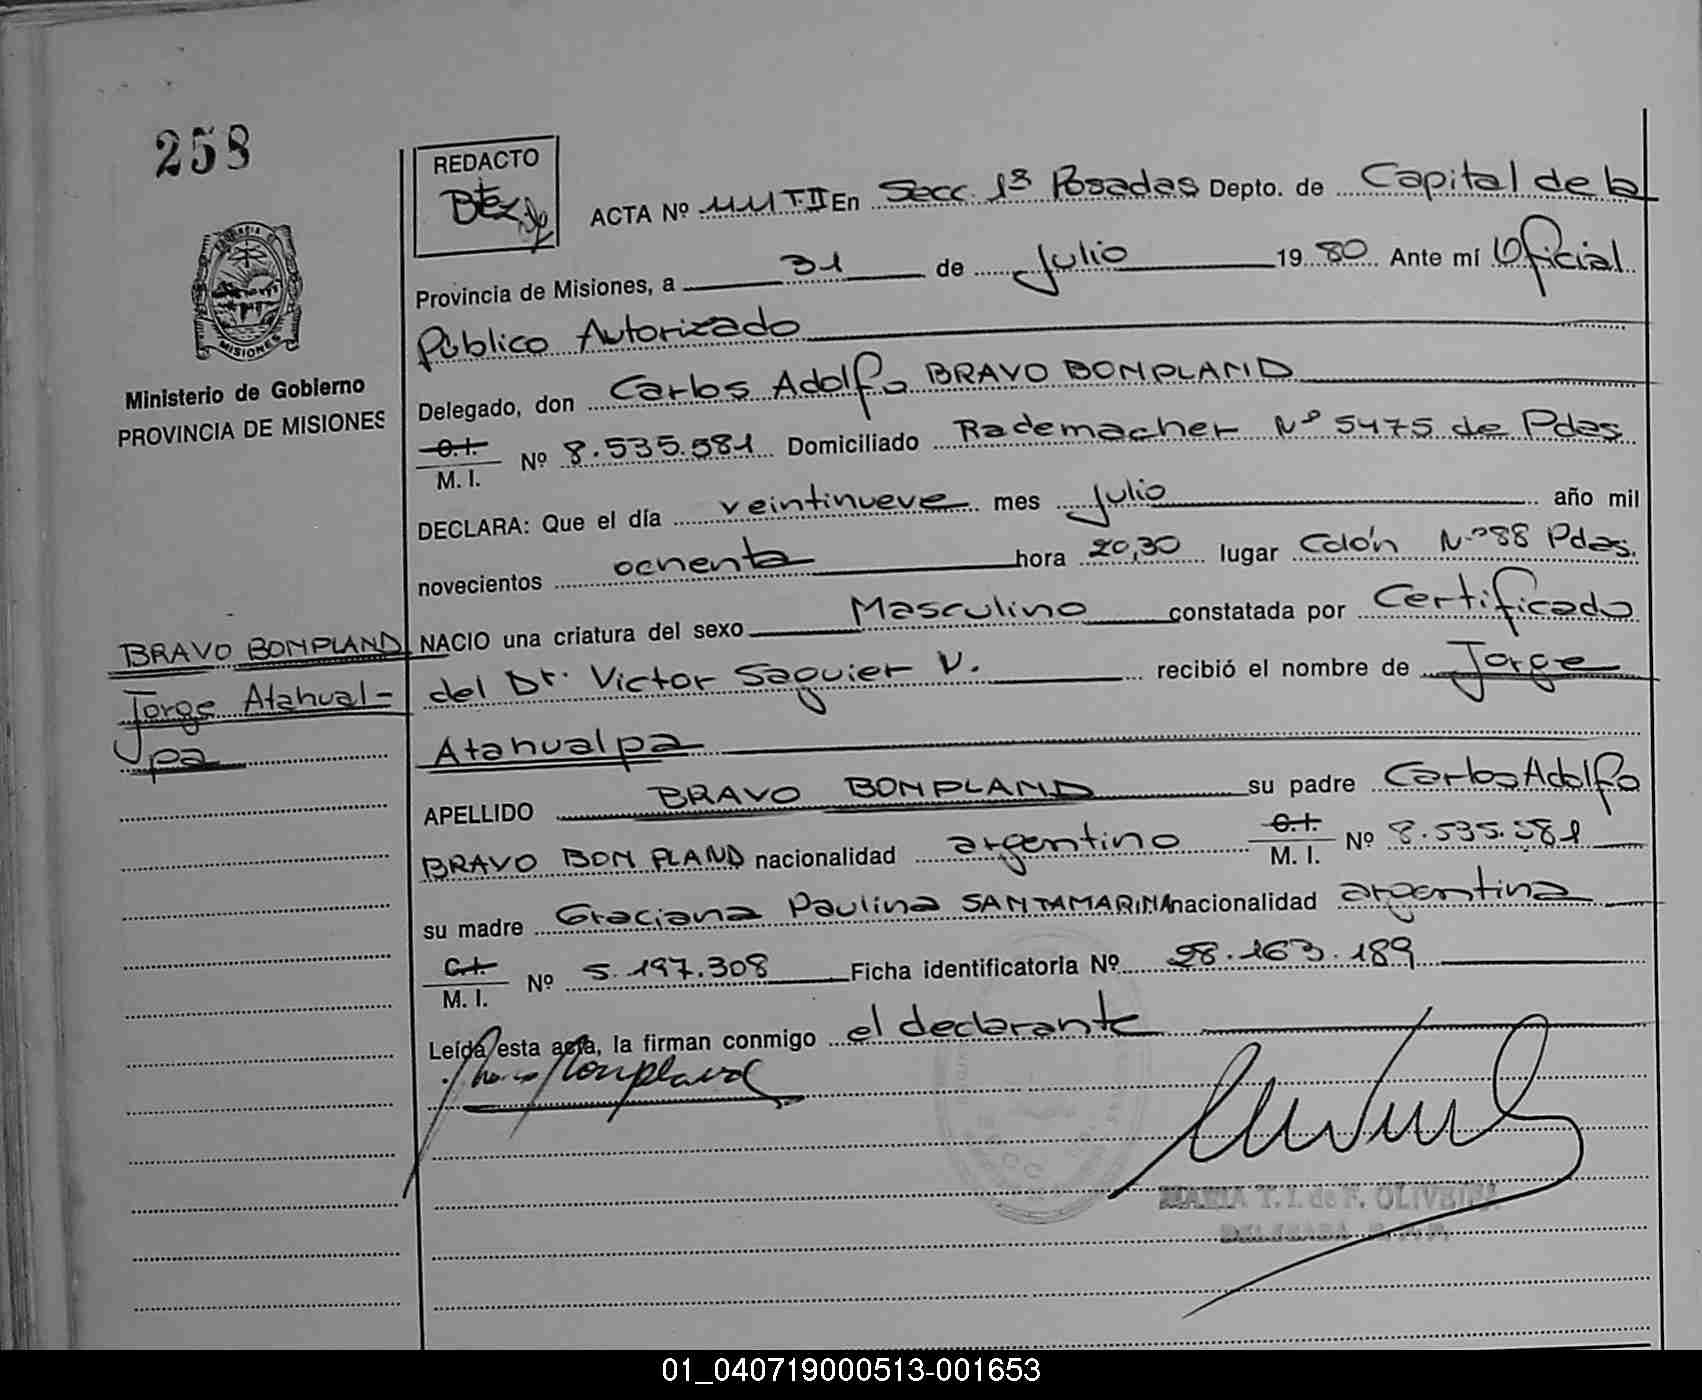 258
REDACTO
ACTA Nº 1111 T.II En Secc. 1ª Posadas Depto. de Capital de la
Provincia de Misiones, a 31 de Julio 1980 Ante mí Oficial
Público Autorizado
PROVINCIA DE
MISIONES
Ministerio de Gobierno
PROVINCIA DE MISIONES
Delegado, don Carlos Adolfo BRAVO BONPLAND
C.I.
M. I. Nº 8.535.581 Domiciliado Rademacher Nº 5475 de Pdas
DECLARA: Que el día veintinueve mes Julio año mil
novecientos ochenta hora 20,30 lugar Colón Nº 88 Pdas.
BRAVO BONPLAND
Jorge Atahual-
pa
NACIO una criatura del sexo Masculino constatada por Certificado
del Dr. Victor Saguier V. recibió el nombre de Jorge
Atahualpa
APELLIDO BRAVO BONPLAND su padre Carlos Adolfo
BRAVO BONPLAND nacionalidad argentino C.I. M. I. Nº 8.535.581
su madre Graciana Paulina SANTAMARINA nacionalidad argentina
C.I.
M. I. Nº 5.197.308 Ficha identificatoria Nº 28.163.189
Leída esta acta, la firman conmigo el declarante
MARIA T. I. de F. OLIVEIRA
DELEGADA
01_040719000513-001653